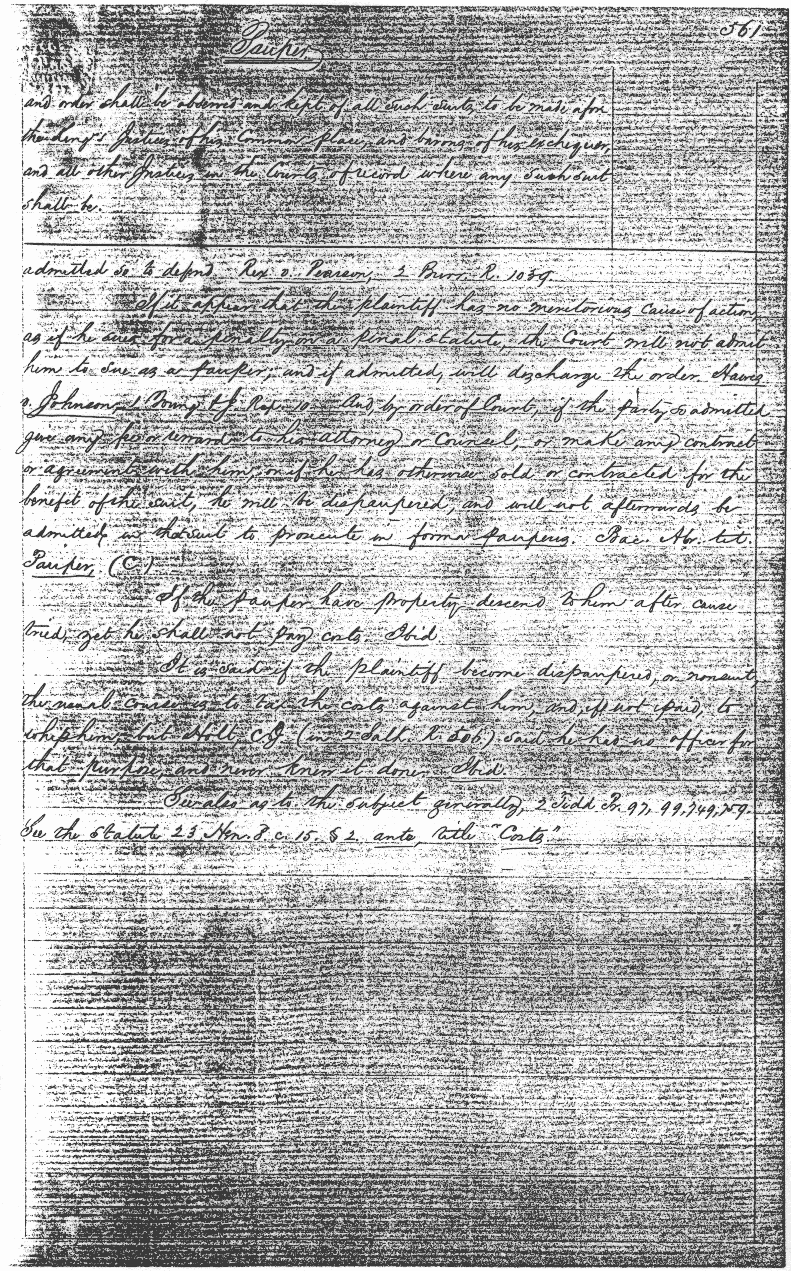 561
Pauper.
and order shall be observed and kept of all such suits to be made afore
the king's Justices of his Common place, and barons of his exchequer,
and all other Justices in the Courts of record where any such suit
shall be.
admitted so to defend. Rex v. Pearson, 2 Burr. R. 1039.
If it appear that the plaintiff has no meritorious cause of action,
as if he sues for a penalty on a penal statute, the Court will not admit
him to sue as a pauper; and if admitted, will discharge the order. Hawes
v. Johnson, 1 Young & J. Rep. 10. And, by order of Court, if the party so admitted
give any fee or reward to his attorney or Counsel, or make any contract
or agreement with them, or if he has otherwise sold or contracted for the
benefit of the suit, he will be dispaupered, and will not afterwards be
admitted in that suit to prosecute in forma pauperis. Bac. Abr. tit.
Pauper, (C.)
If the pauper have property descend to him after cause
tried, yet he shall not pay costs. Ibid.
It is said if the plaintiff become dispaupered, or nonsuit,
the usual course is to tax the costs against him, and, if not paid, to
whip him, but Holt, C.J. (in 2 Salk. R. 506.) said he had no officer for
that purpose, and never knew it done. Ibid.
See also as to the subject generally, 2 Tidd Pr. 97, 99, 749, 759.
See the Statute 23 Hen. 8. c. 15. § 2. ante, title "Costs."